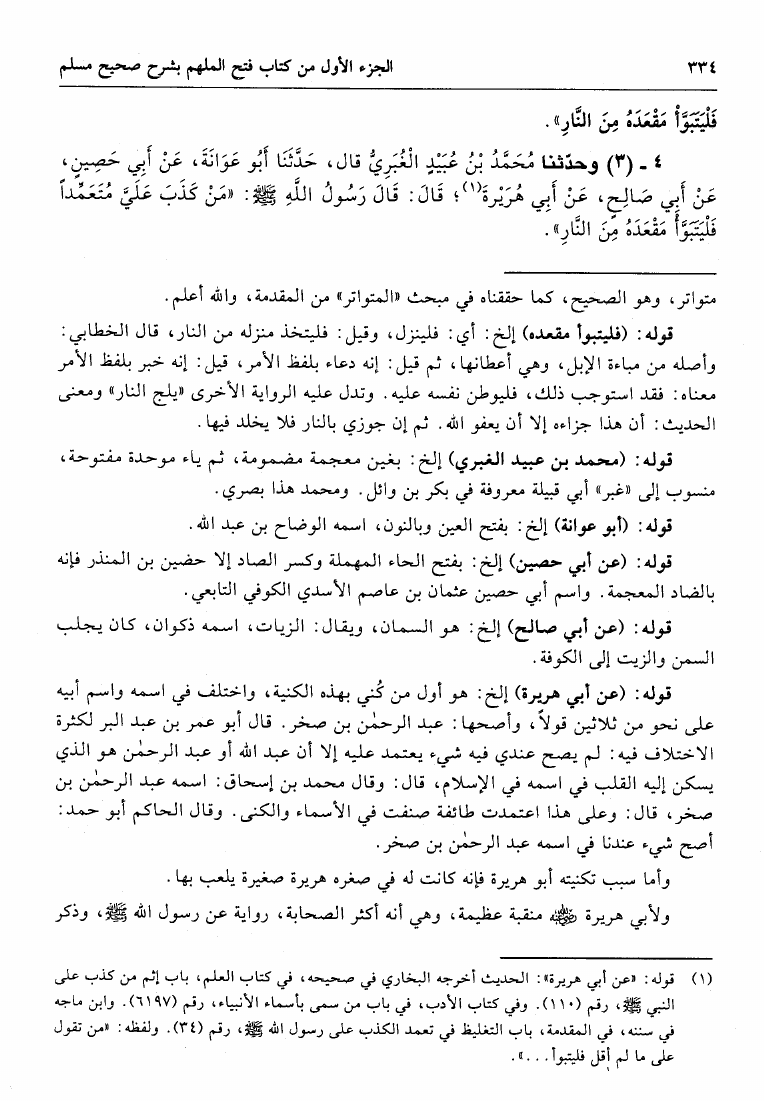 ٣٣٤ الجزء الأول من كتاب فتح الملهم بشرح صحيح مسلم
فَلْيَتَبَوَّأْ مَقْعَدَهُ مِنَ النَّارِ».
٤ - (٣) وحدّثنا مُحَمَّدُ بْنُ عُبَيْدٍ الْغُبَرِيُّ قال، حَدَّثَنَا أَبُو عَوَانَةَ، عَنْ أَبِي حَصِينٍ،
عَنْ أَبِي صَالِحٍ، عَنْ أَبِي هُرَيْرَةَ(١)؛ قَالَ: قَالَ رَسُولُ اللَّهِ ﷺ: «مَنْ كَذَبَ عَلَيَّ مُتَعَمِّداً
فَلْيَتَبَوَّأْ مَقْعَدَهُ مِنَ النَّارِ».
متواتر، وهو الصحيح، كما حققناه في مبحث «المتواتر» من المقدمة، والله أعلم.
قوله: (فليتبوأ مقعده) إلخ: أي: فلينزل، وقيل: فليتخذ منزله من النار، قال الخطابي:
وأصله من مباءة الإبل، وهي أعطانها، ثم قيل: إنه دعاء بلفظ الأمر، قيل: إنه خبر بلفظ الأمر
معناه: فقد استوجب ذلك، فليوطن نفسه عليه. وتدل عليه الرواية الأخرى «يلج النار» ومعنى
الحديث: أن هذا جزاءه إلا أن يعفو الله. ثم إن جوزي بالنار فلا يخلد فيها.
قوله: (محمد بن عبيد الغبري) إلخ: بغين معجمة مضمومة، ثم باء موحدة مفتوحة،
منسوب إلى «غبر» أبي قبيلة معروفة في بكر بن وائل. ومحمد هذا بصري.
قوله: (أبو عوانة) إلخ: بفتح العين وبالنون، اسمه الوضاح بن عبد الله.
قوله: (عن أبي حصين) إلخ: بفتح الحاء المهملة وكسر الصاد إلا حضين بن المنذر فإنه
بالضاد المعجمة. واسم أبي حصين عثمان بن عاصم الأسدي الكوفي التابعي.
قوله: (عن أبي صالح) إلخ: هو السمان، ويقال: الزيات، اسمه ذكوان، كان يجلب
السمن والزيت إلى الكوفة.
قوله: (عن أبي هريرة) إلخ: هو أول من كُني بهذه الكنية، واختلف في اسمه واسم أبيه
على نحو من ثلاثين قولاً، وأصحها: عبد الرحمٰن بن صخر. قال أبو عمر بن عبد البر لكثرة
الاختلاف فيه: لم يصح عندي فيه شيء يعتمد عليه إلا أن عبد الله أو عبد الرحمٰن هو الذي
يسكن إليه القلب في اسمه في الإسلام، قال: وقال محمد بن إسحاق: اسمه عبد الرحمٰن بن
صخر، قال: وعلى هذا اعتمدت طائفة صنفت في الأسماء والكنى. وقال الحاكم أبو حمد:
أصح شيء عندنا في اسمه عبد الرحمٰن بن صخر.
وأما سبب تكنيته أبو هريرة فإنه كانت له في صغره هريرة صغيرة يلعب بها.
ولأبي هريرة رضي الله عنه منقبة عظيمة، وهي أنه أكثر الصحابة، رواية عن رسول الله ﷺ، وذكر
(١) قوله: «عن أبي هريرة»: الحديث أخرجه البخاري في صحيحه، في كتاب العلم، باب إثم من كذب على
النبي ﷺ، رقم (١١٠). وفي كتاب الأدب، في باب من سمى بأسماء الأنبياء، رقم (٦١٩٧). وابن ماجه
في سننه، في المقدمة، باب التغليظ في تعمد الكذب على رسول الله ﷺ، رقم (٣٤). ولفظه: «من تقول
على ما لم أقل فليتبوأ...».